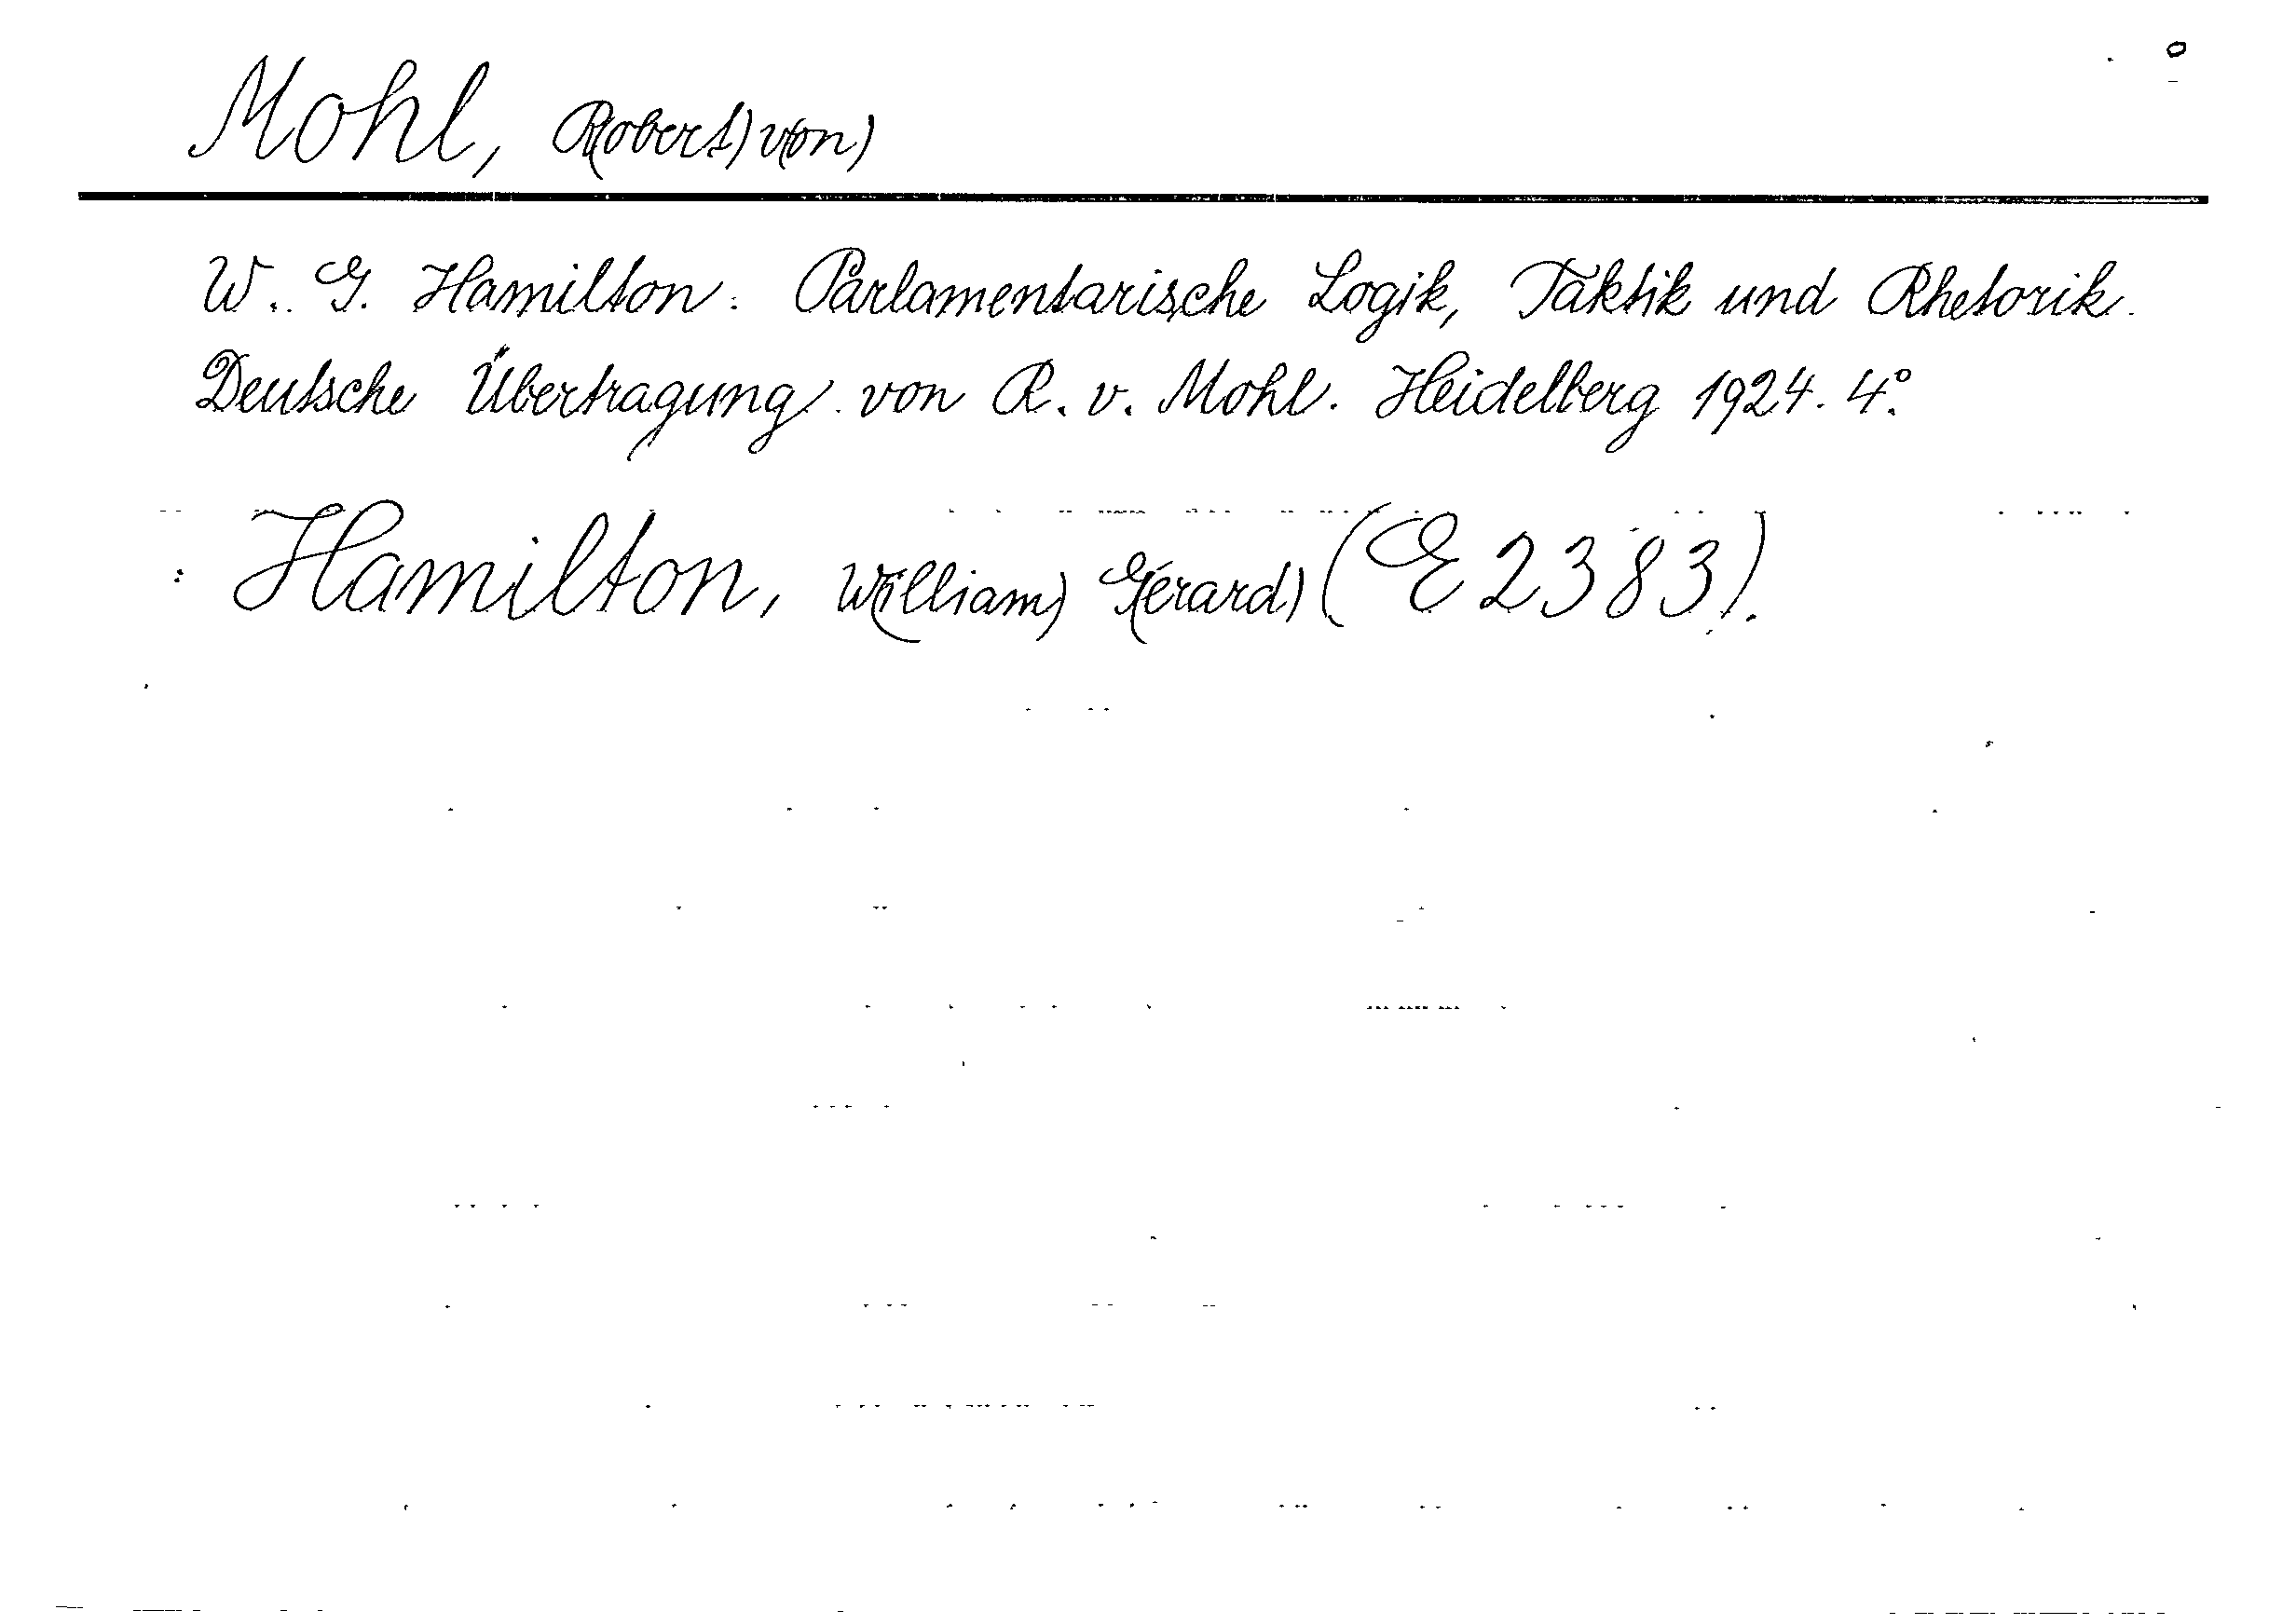 Mohl, R(obert) v(on)
W. G. Hamilton: Parlamentarische Logik, Taktik und Rhetorik.
Deutsche Übertragung von R. v. Mohl. Heidelberg 1924. 4°.
Hamilton, W(illiam) G(erard) (E 2383).